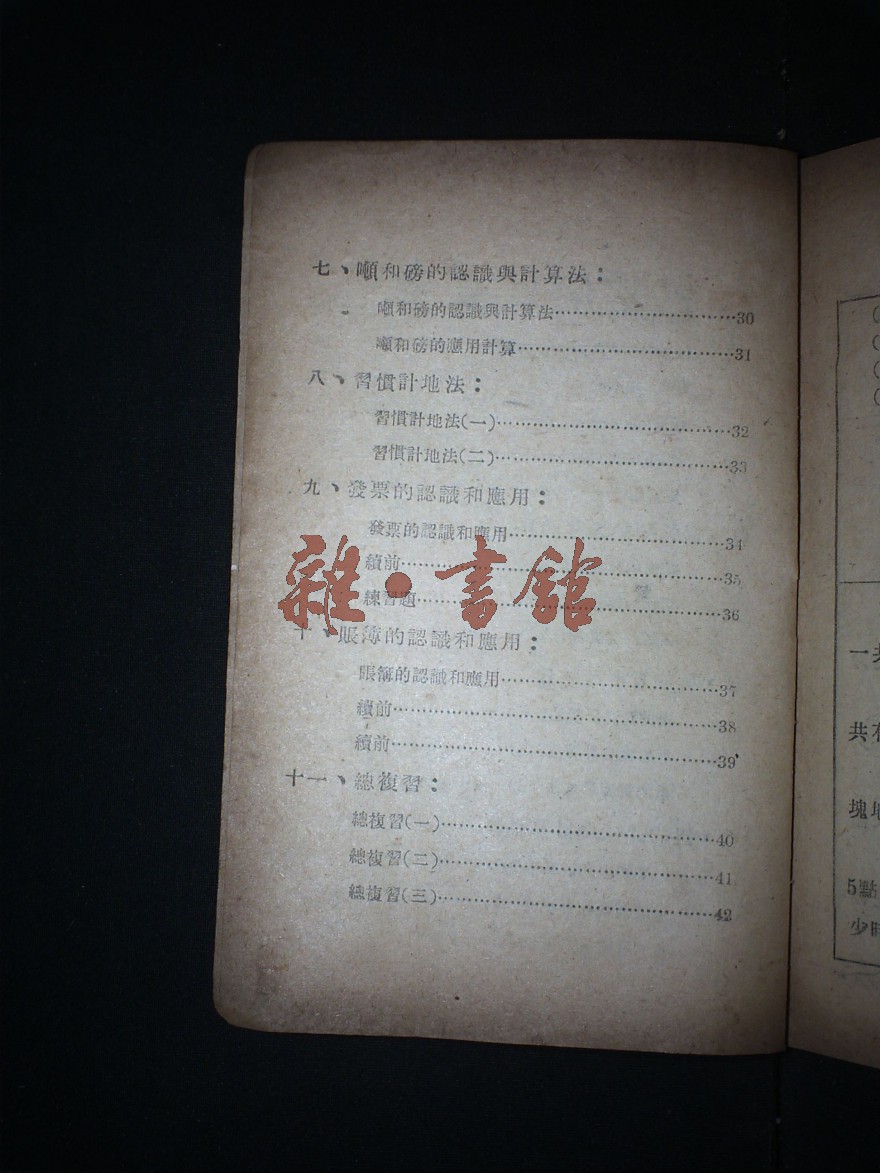 七、噸和磅的認識與計算法：
噸和磅的認識與計算法……………………………30
噸和磅的應用計算…………………………………31
八、習慣計地法：
習慣計地法(一)……………………………………32
習慣計地法(二)……………………………………33
九、發票的認識和應用：
發票的認識和應用…………………………………34
續前…………………………………………………35
練習題………………………………………………36
十、賬簿的認識和應用：
賬簿的認識和應用…………………………………37
續前…………………………………………………38
續前…………………………………………………39
十一、總複習：
總複習(一)…………………………………………40
總複習(二)…………………………………………41
總複習(三)…………………………………………42
雜·書館
一共
共有
塊地
5點
少時